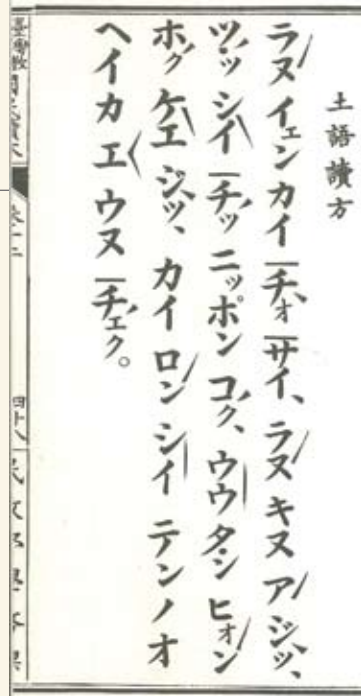 土語讀方
ラヌ イェン カイ チ̅ォ サ̅イ、 ラヌ キヌ アジッ、
ツッ シイ チ̅ッ ニッポン コㇰ、 ウウ タン ヒォン
ホㇰ ケエ ジッ、 カイ ロン シイ テンノオ
ヘイカ エ ウヌ チ̅ェㇰ。
卷十二
四十八